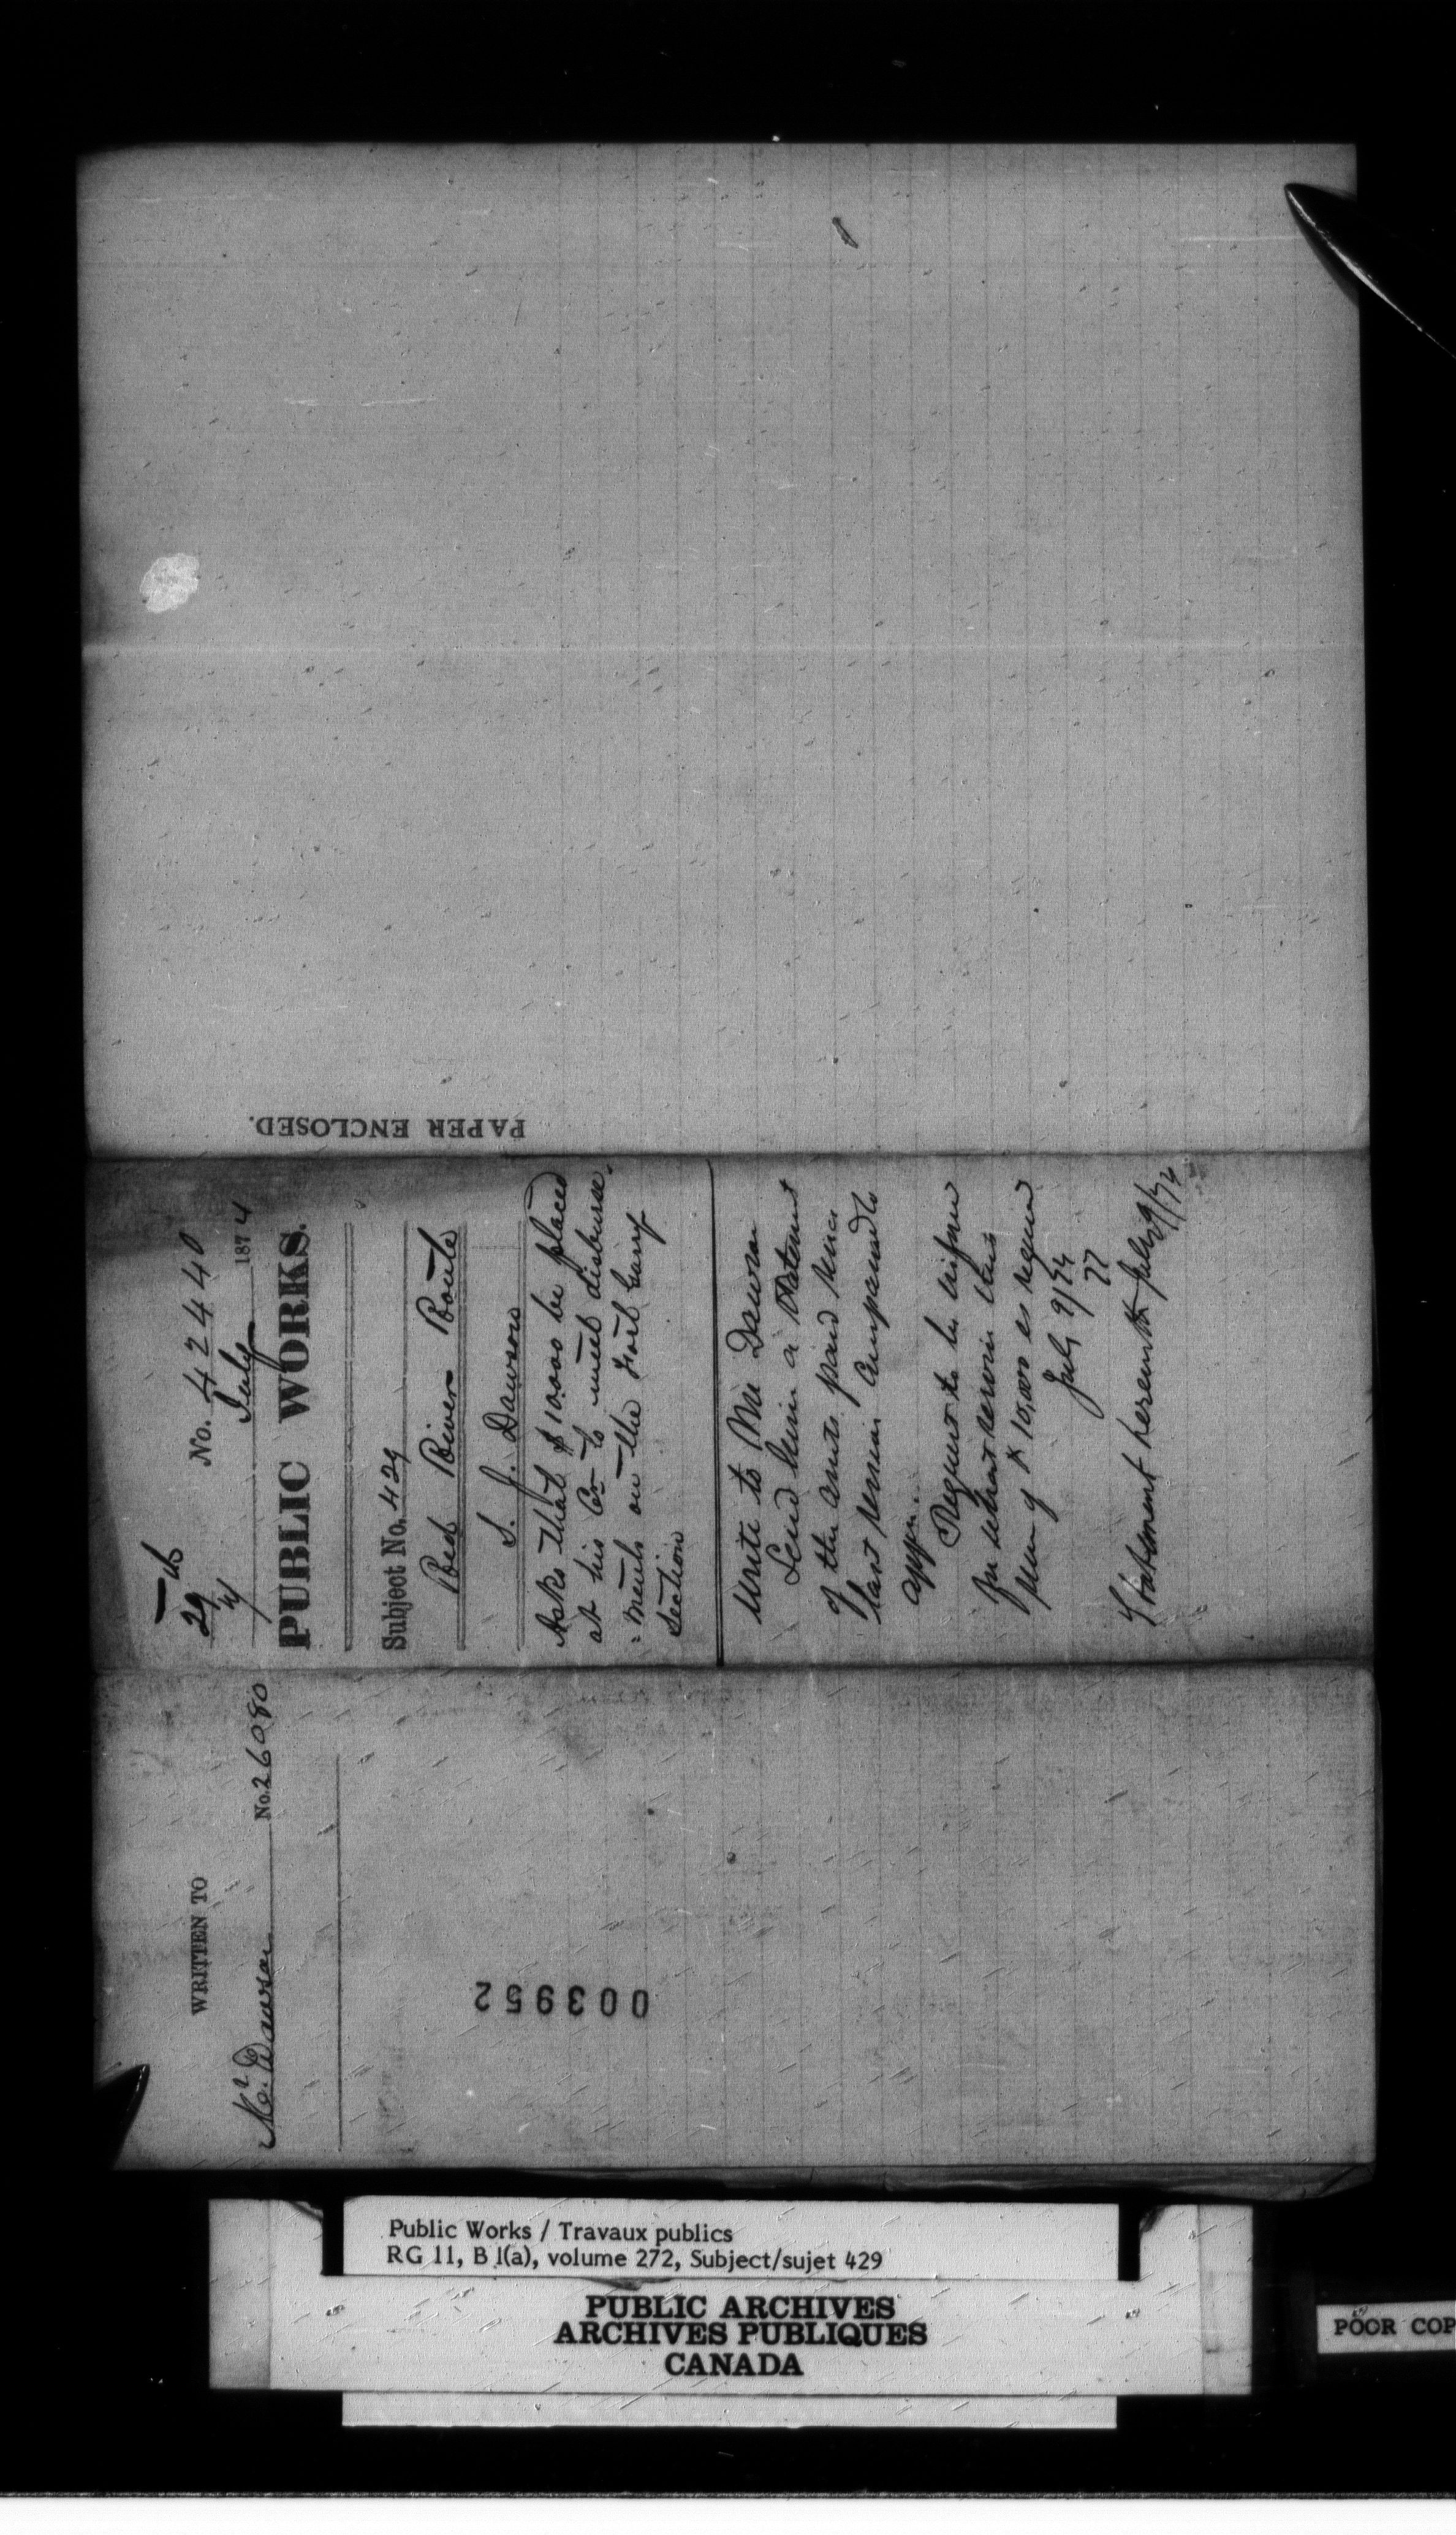 PAPER ENCLOSED.
No. 42440
29
July 1874
PUBLIC WORKS.
Subject No. 429
Red River Route
S. J. Dawson
Asks that $10.000 be placed
at his Cr to meet disburse-
=ments on the Fort Garry
Section
Write to Mr Dawson
Send him a Statement
of the amts. paid since
last session compared to
appn.
Request to be informed
for what service this
sum of $10,000 is required
July 9/74
Statement herewith July 9/74
WRITTEN TO
Mr. Dawson No. 26080
003952
Public Works / Travaux publics
RG 11, B 1(a), volume 272, Subject/sujet 429
PUBLIC ARCHIVES
ARCHIVES PUBLIQUES
CANADA
POOR COP